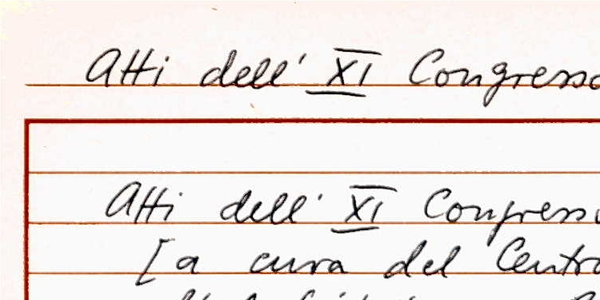 Atti dell' XI Congresso
Atti dell' XI Congresso
[a cura del Centro